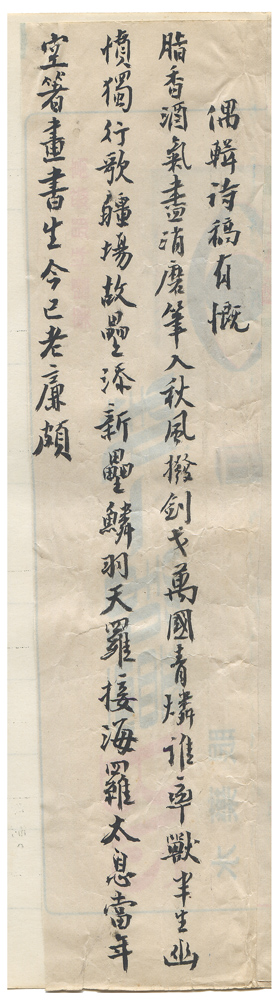 偶輯詩稿有慨
脂香酒氣盡消磨筆入秋風撥劍戈萬國青燐誰率獸半生幽
憤獨行歌疆場故壘添新壘鱗羽天羅接海羅太息當年
空箸畫書生今已老廉頗